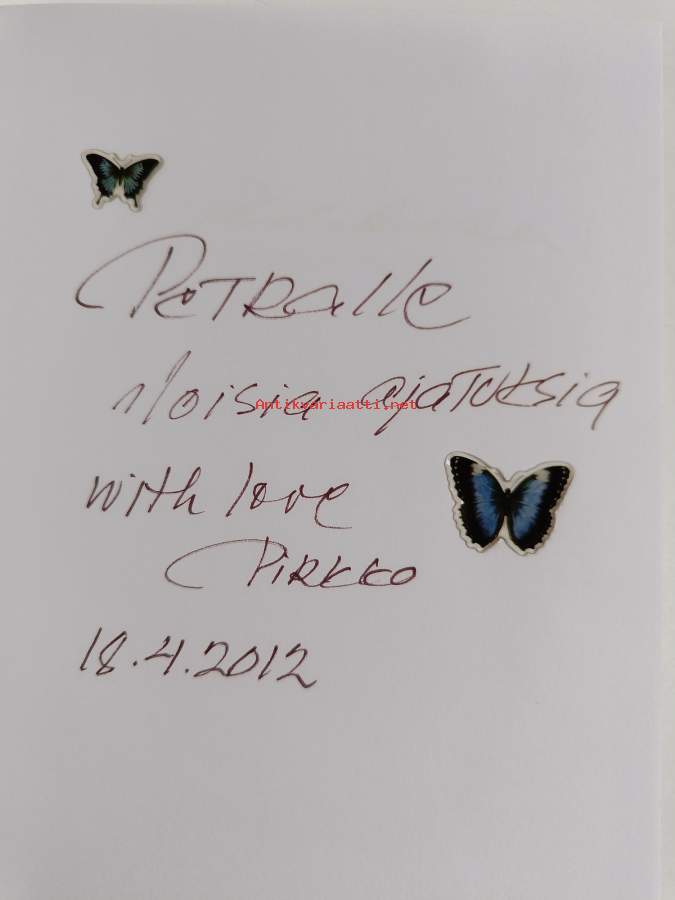 Petralle
iloisia ajatuksia
Antikvariaatti.net
with love
Pirkko
18.4.2012